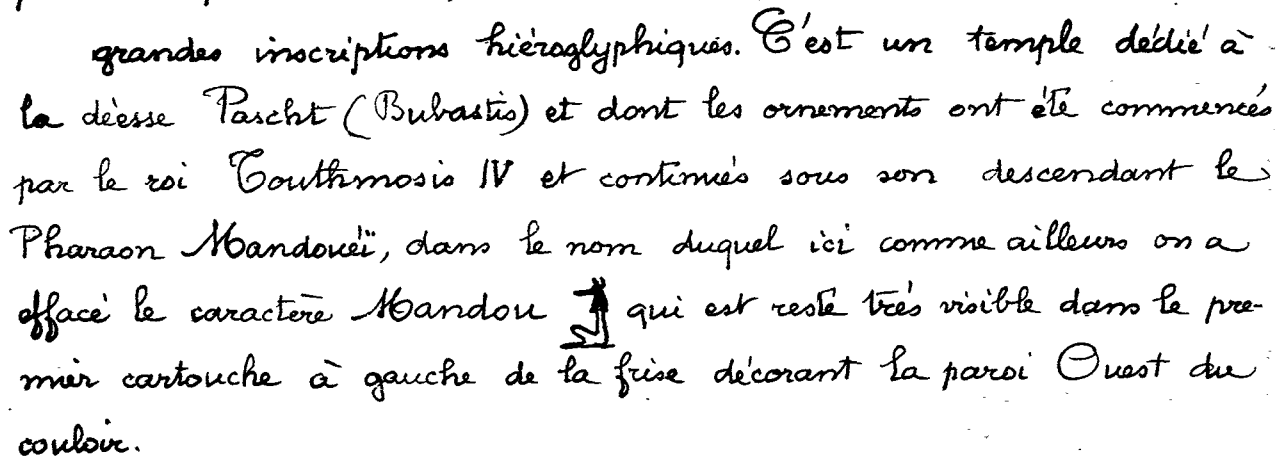 grandes inscriptions hiéroglyphiques. C'est un temple dédié à
la déesse Pascht (Bubastis) et dont les ornements ont été commencés
par le roi Touthmosis IV et continués sous son descendant le
Pharaon Mandouéï, dans le nom duquel ici comme ailleurs on a
effacé le caractère Mandou qui est resté très visible dans le pre-
mier cartouche à gauche de la frise décorant la paroi Ouest du
couloir.